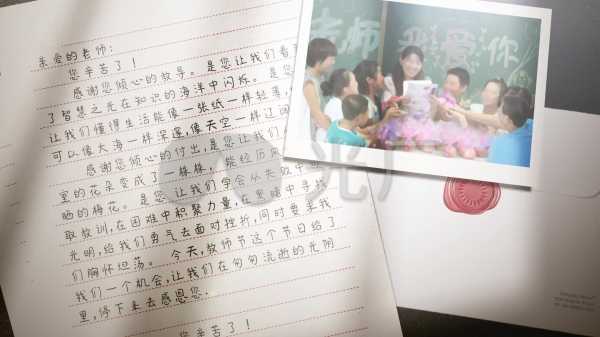 亲爱的老师:
您辛苦了!
感谢您倾心的教导。是您让我们看
了智慧之光在知识的海洋中闪烁。是您
让我们懂得生活能像一张纸一样轻薄,
可以像大海一样深邃,像天空一样辽阔
感谢您倾心的付出,是您让我们
室的花朵变成了一株株 能经历风
晒的梅花。是您,让我们学会从失败中
取教训,在困难中积聚力量,在黑暗中寻找
光明,给我们勇气去面对挫折,同时要求我
们胸怀坦荡。今天,教师节这个节日给了
我们一个机会,让我们在匆匆流逝的光阴
里,停下来去感恩您.
您辛苦了!
老师 我爱你